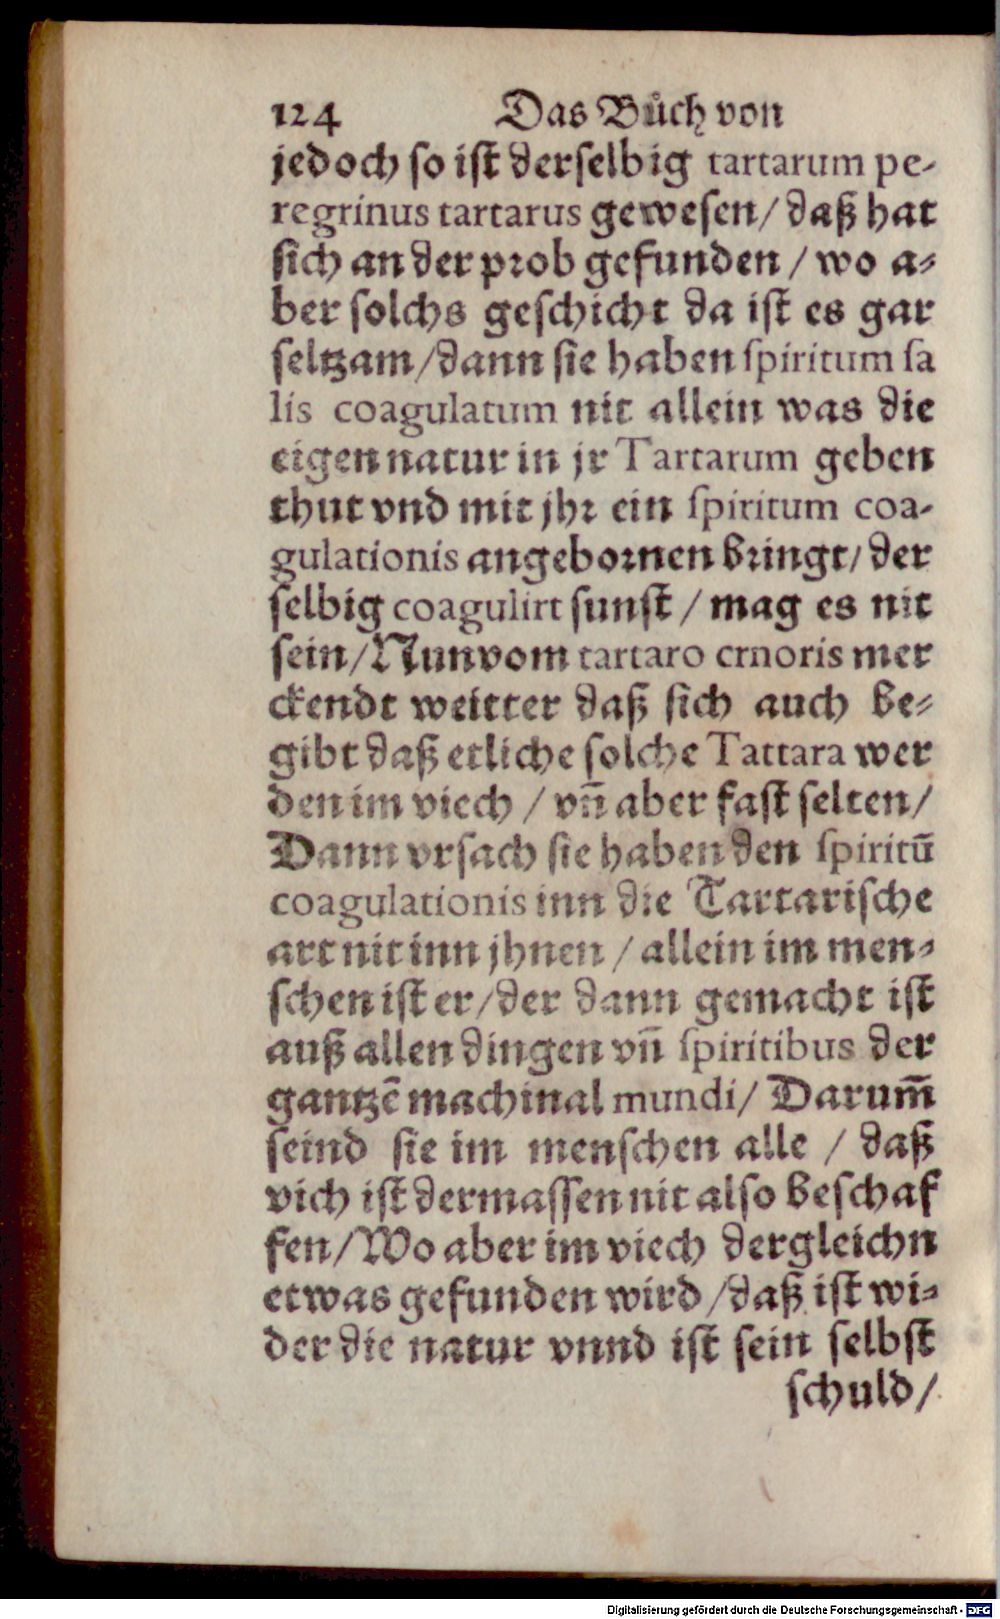 124 Das Bůch von
jedoch so ist derselbig tartarum pe-
regrinus tartarus gewesen/ daß hat
sich an der prob gefunden / wo a-
ber solchs geschicht da ist es gar
seltzam/dann sie haben spiritum sa
lis coagulatum nit allein was die
eigen natur in jr Tartarum geben
thut vnd mit jhr ein spiritum coa-
gulationis angebornen bringt/ der
selbig coagulirt sunst / mag es nit
sein/Nun vom tartaro crnoris mer
ckendt weitter daß sich auch be-
gibt daß etliche solche Tattara wer
den im viech / vñ aber fast selten/
Dann vrsach sie haben den spiritū
coagulationis inn die Tartarische
art nit inn jhnen / allein im men-
schen ist er/der dann gemacht ist
auß allen dingen vñ spiritibus der
gantzē machinal mundi/ Darum̄
seind sie im menschen alle / daß
vich ist dermassen nit also beschaf
fen/Wo aber im viech dergleichn
etwas gefunden wird /daß ist wi-
der die natur vnnd ist sein selbst
schuld/
Digitalisierung gefördert durch die Deutsche Forschungsgemeinschaft - DFG